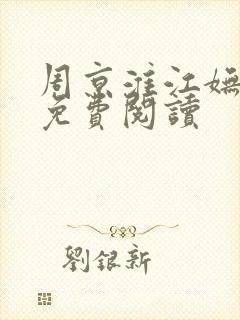 周京淮江嫵
免費閱讀
劉銀新